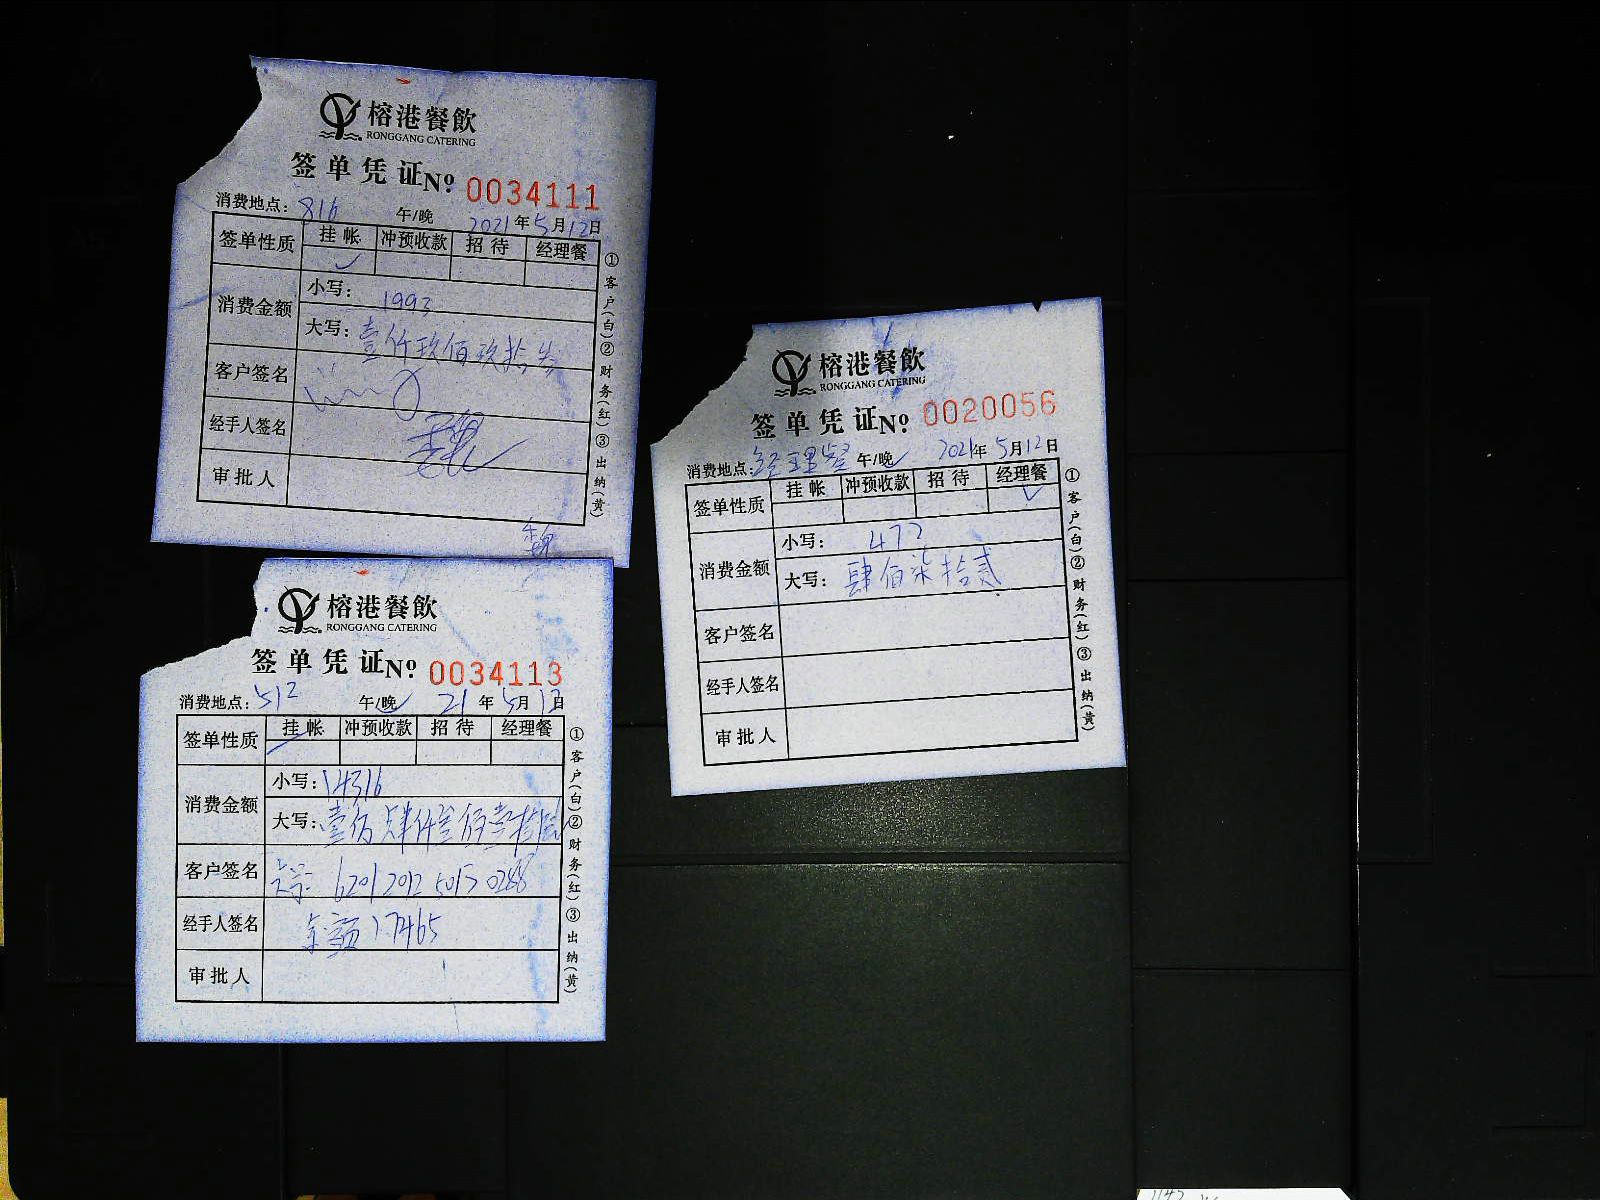 榕港餐飲
RONGGANG CATERING
签单凭证 Nº 0034111
消费地点: 816 午/晚 2021年5月12日
签单性质 挂帐 冲预收款 招待 经理餐
✓
消费金额 小写: 1993
大写: 壹仟玖佰玖拾叁
客户签名
经手人签名
审批人
①客户(白)②财务(红)③出纳(黄)
榕港餐飲
RONGGANG CATERING
签单凭证 Nº 0034113
消费地点: 512 午/晚✓ 21年5月12日
签单性质 挂帐 冲预收款 招待 经理餐
消费金额 小写: 14316
大写: 壹万肆仟叁佰壹拾陆
客户签名 6201 2012 5015 0288
经手人签名 余额17465
审批人
①客户(白)②财务(红)③出纳(黄)
榕港餐飲
RONGGANG CATERING
签单凭证 Nº 0020056
消费地点: 经理餐 午/晚✓ 2021年5月12日
签单性质 挂帐 冲预收款 招待 经理餐
✓
消费金额 小写: 472
大写: 肆佰柒拾贰
客户签名
经手人签名
审批人
①客户(白)②财务(红)③出纳(黄)